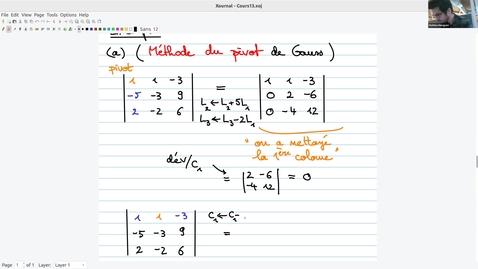 Xournal - Cours13.xoj
Sans 12
(a) (Méthode du pivot de Gauss)
pivot
1 1 -3
-5 -3 9
2 -2 6
=
L₂ ← L₂+5L₁
L₃ ← L₃-2L₁
1 1 -3
0 2 -6
0 -4 12
"on a nettoyé
la 1ère colonne"
dév/C₁
=
2 -6
-4 12
= 0
1 1 -3
-5 -3 9
2 -2 6
C₁ ← C₁-
=
Page 1 of 1 Layer: Layer 1